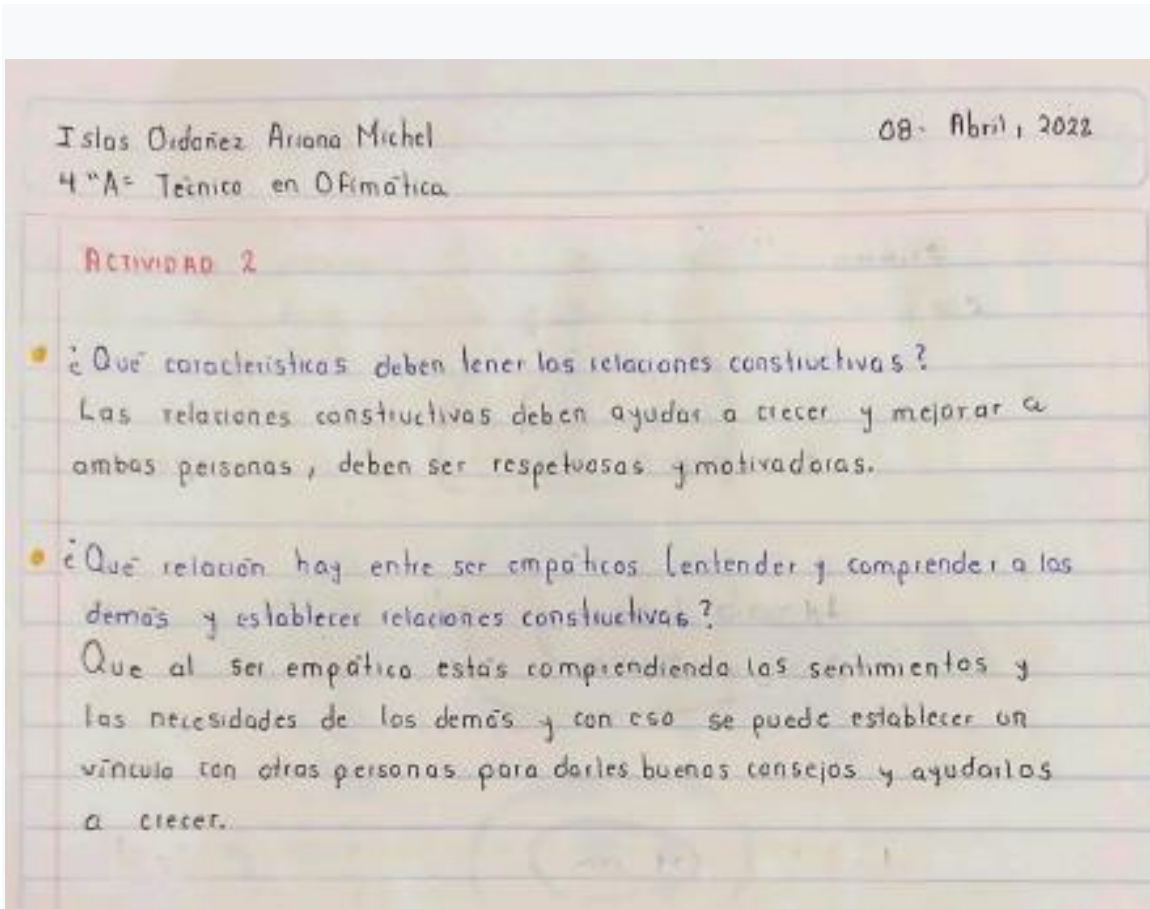 Islas Ordoñez Ariana Michel
08- Abril, 2022
4 "A" Técnico en Ofimática
ACTIVIDAD 2
¿Qué características deben tener las relaciones constructivas?
Las relaciones constructivas deben ayudar a crecer y mejorar a
ambas personas, deben ser respetuosas y motivadoras.
¿Qué relación hay entre ser empáticos (entender y comprender a los
demás y establecer relaciones constructivas?
Que al ser empático estás comprendiendo los sentimientos y
las necesidades de los demás y con eso se puede establecer un
vínculo con otras personas para darles buenos consejos y ayudarlos
a crecer.